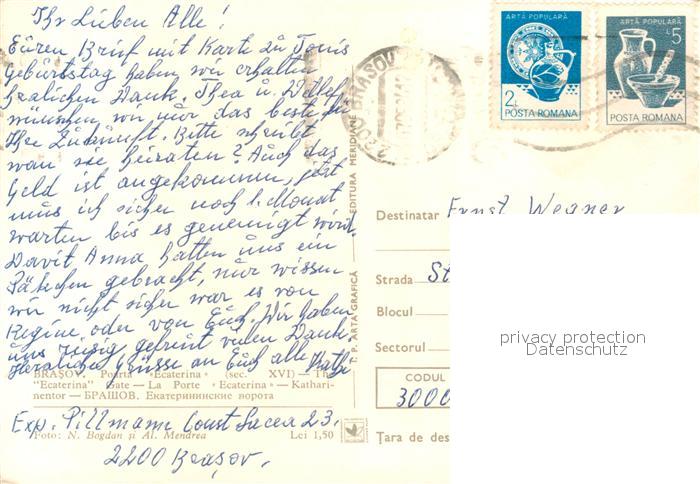 Ihr Lieben Alle!
Euren Brief mit Karte zu Tonis
Geburtstag haben wir erhalten
herzlichen Dank. Thea u. Detlef
wünschen wir nur das beste für
Ihre Zukunft. Bitte schreibt
wan sie heiraten? Auch das
Geld ist angekommen, jetzt
mus ich sicher noch 1. Monat
warten bis es genemigt wird.
Davit Anna hatten uns ein
Päkchen gebracht, nur wissen
wir nicht sicher war es von
Regine oder von Euch, Wir haben
uns riesig gefreut vielen Dank.
Herzliche Grüsse an Euch alle
BRAȘOV. Poarta „Ecaterina" (sec. XVI) — The
"Ecaterina" Gate — La Porte «Ecaterina» — Kathari-
nentor — БРАШОВ. Екатерининские ворота
Exp. Pillmann Const Lacea 23.
Foto: N. Bogdan și Al. Mendrea Lei 1,50
2200 Brașov.
I. P. ARTA GRAFICĂ
EDITURA MERIDIANE
2200 BRASOV
ARTĂ POPULARĂ
2L
POSTA ROMANA
ARTĂ POPULARĂ
L5
POSTA ROMANA
Destinatar Ernst Wegner
Strada St
Blocul
Sectorul
CODUL
3000
Țara de des
privacy protection
Datenschutz